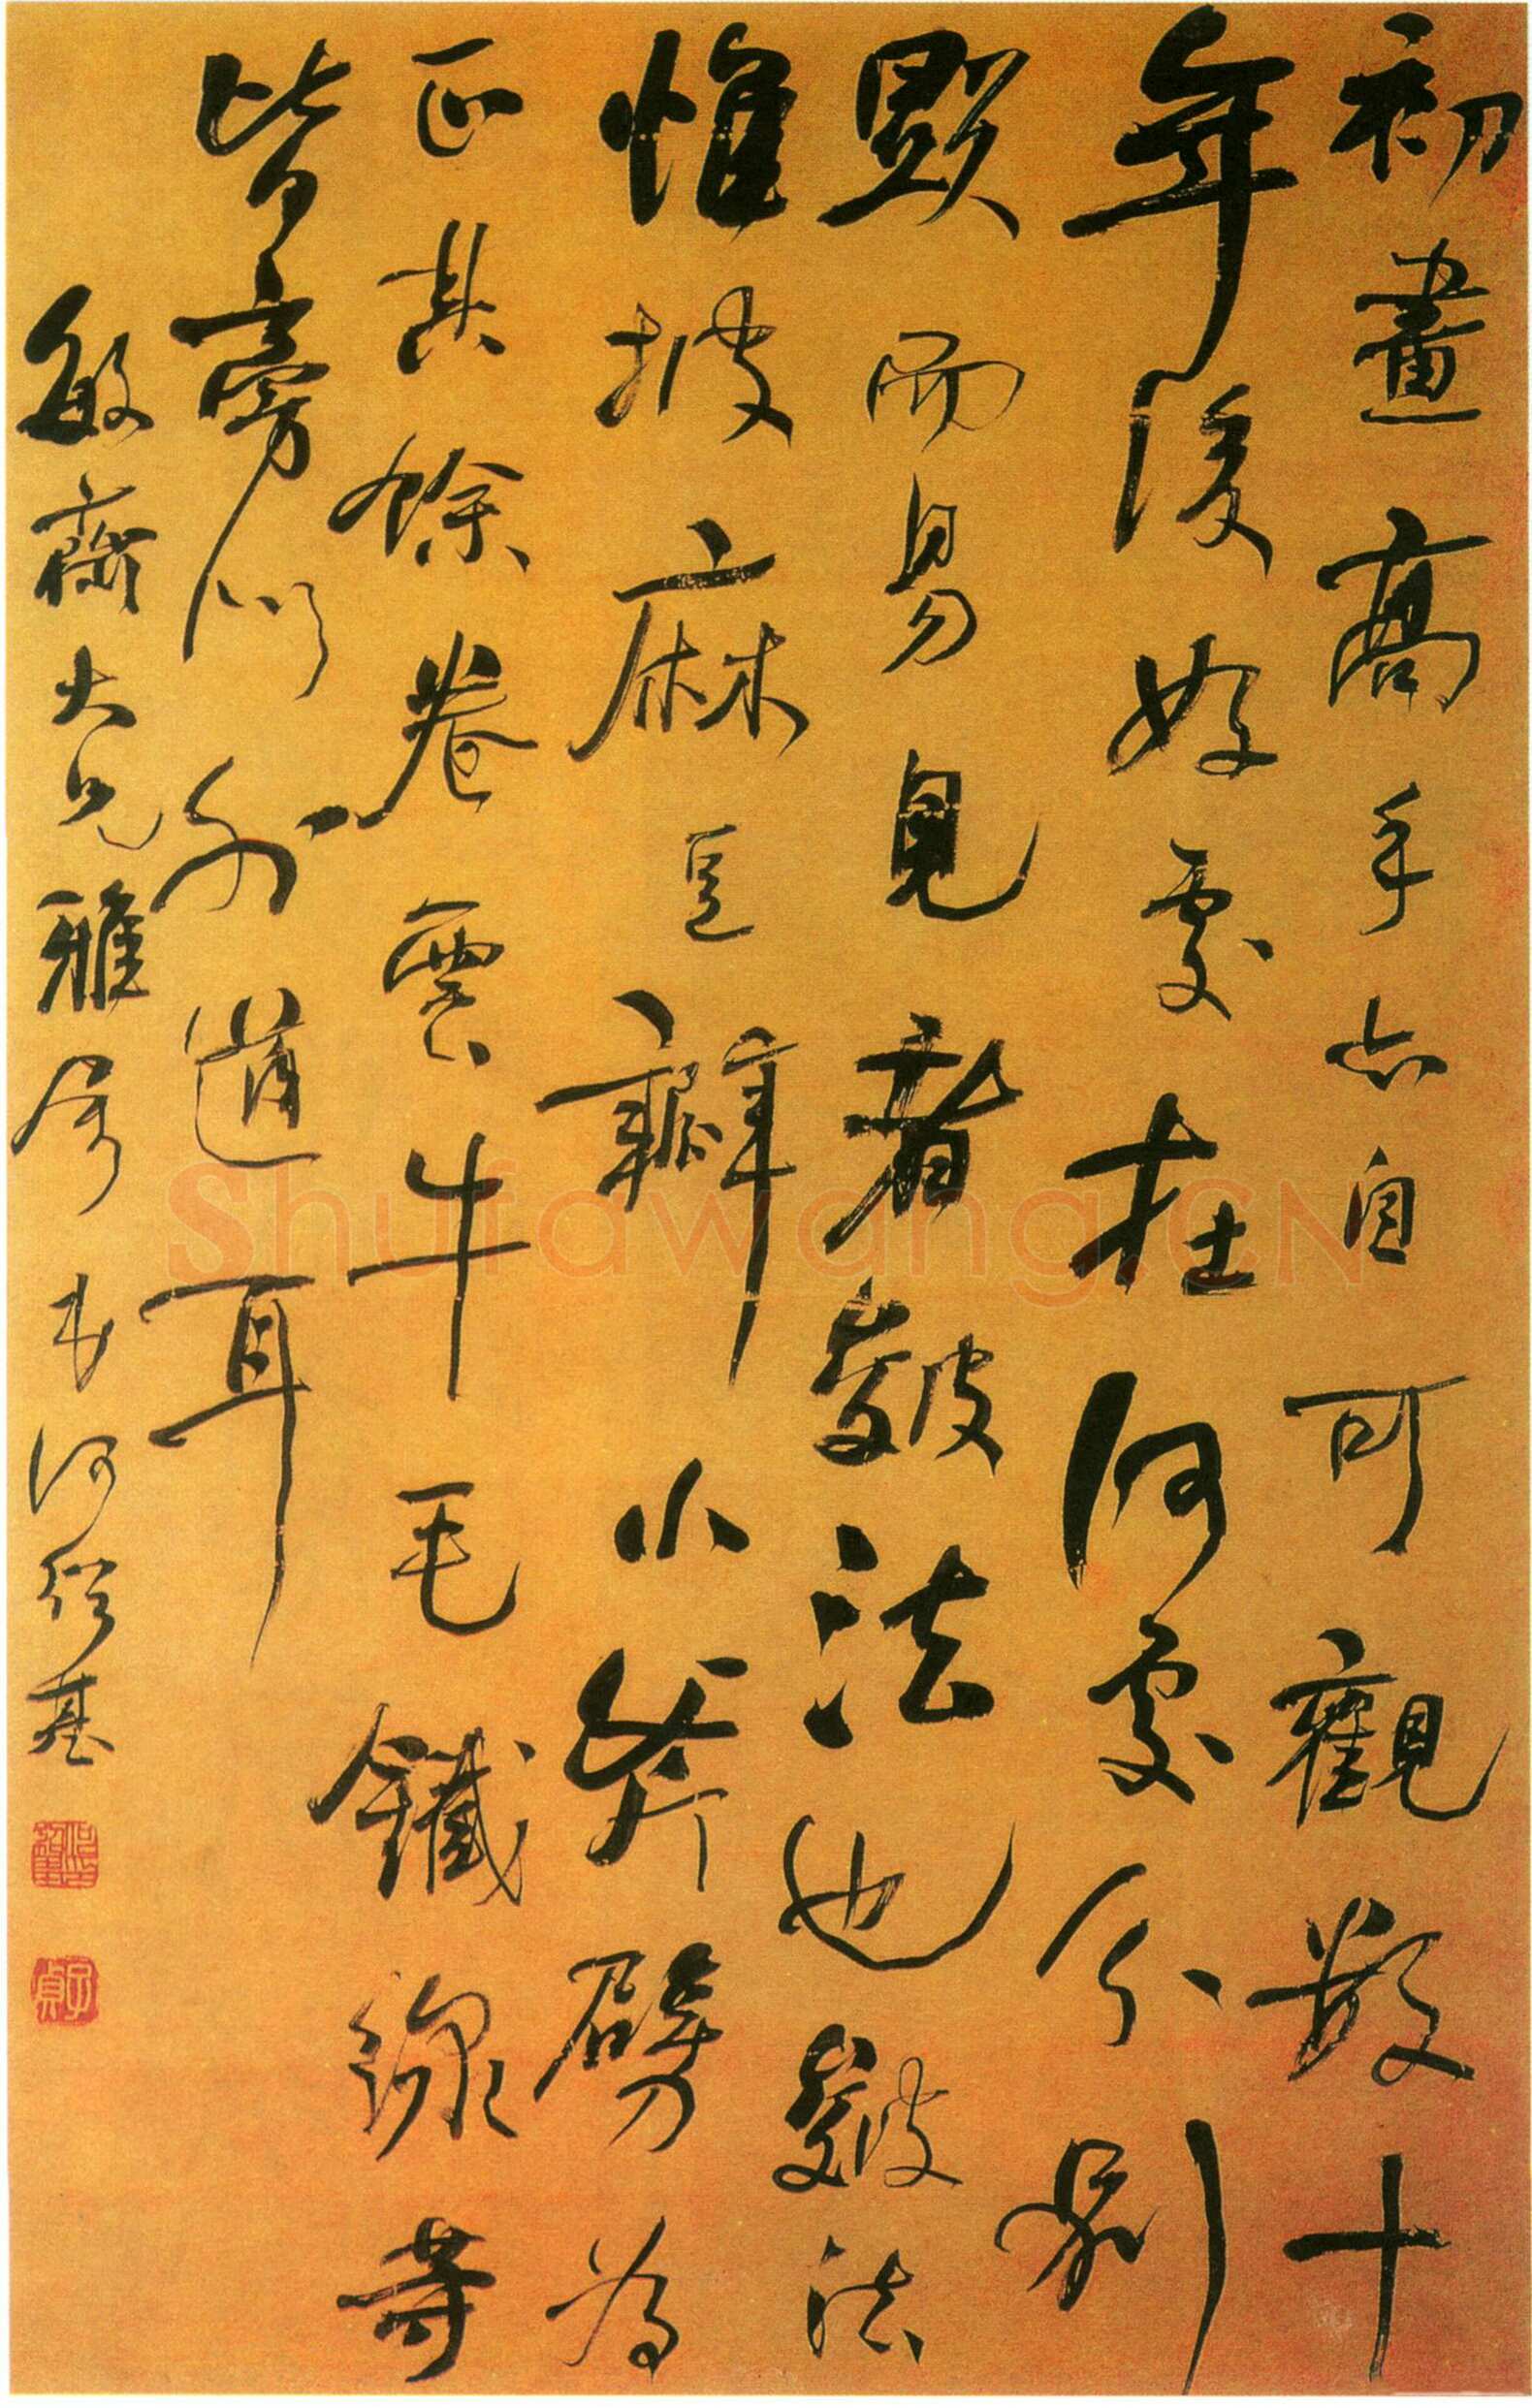 初畫高手亦自可觀數十
年後好處在何處分別
顯而易見者皴法也皴法
惟披麻豆瓣小斧劈為
正其餘卷雲牛毛鐵線等
皆旁門外道耳
敏齋大兄雅屬 弟何紹基
子貞
Shufawang.CN